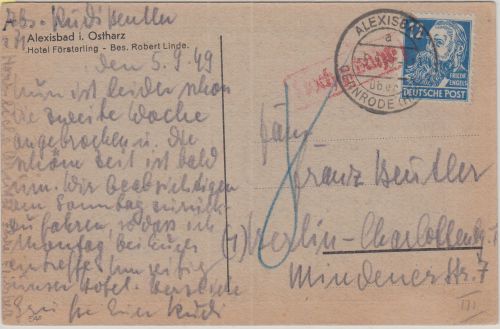 Abs. Rudi Beutler
Alexisbad i. Ostharz
Hotel Försterling - Bes. Robert Linde.
den 5.9.49
Nun ist leider schon
die zweite Woche
angebrochen u. die
schöne Zeit ist bald
um. Wir beabsichtigen
am Sonntag zurück
zu fahren, so dass ich
Montag bei Euch
eintreffe.
unser Hotel.
Gruß Euer Rudi
ALEXISBAD
a
12
FRIEDR.
ENGELS
DEUTSCHE POST
Franz Beutler
(1) Berlin-Charlottenbg.
Mindener Str. 7
III